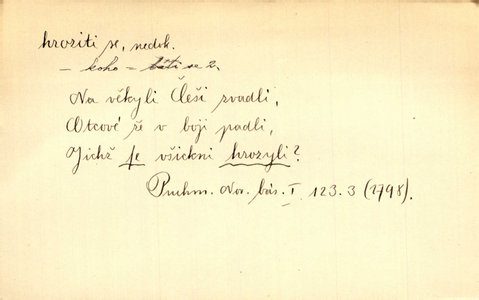 hroziti se, nedok.
– koho = báti se 2.
Na věkyli Češi zvadli,
Otcové že v boji padli,
Jichž se všickni hrozyli?
Puchm. Nov. bás. I. 123. 3 (1798).